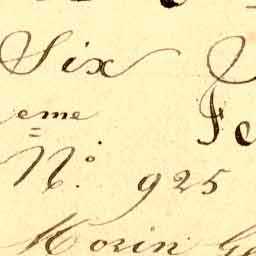 Six
eme
N.° 925
Morin